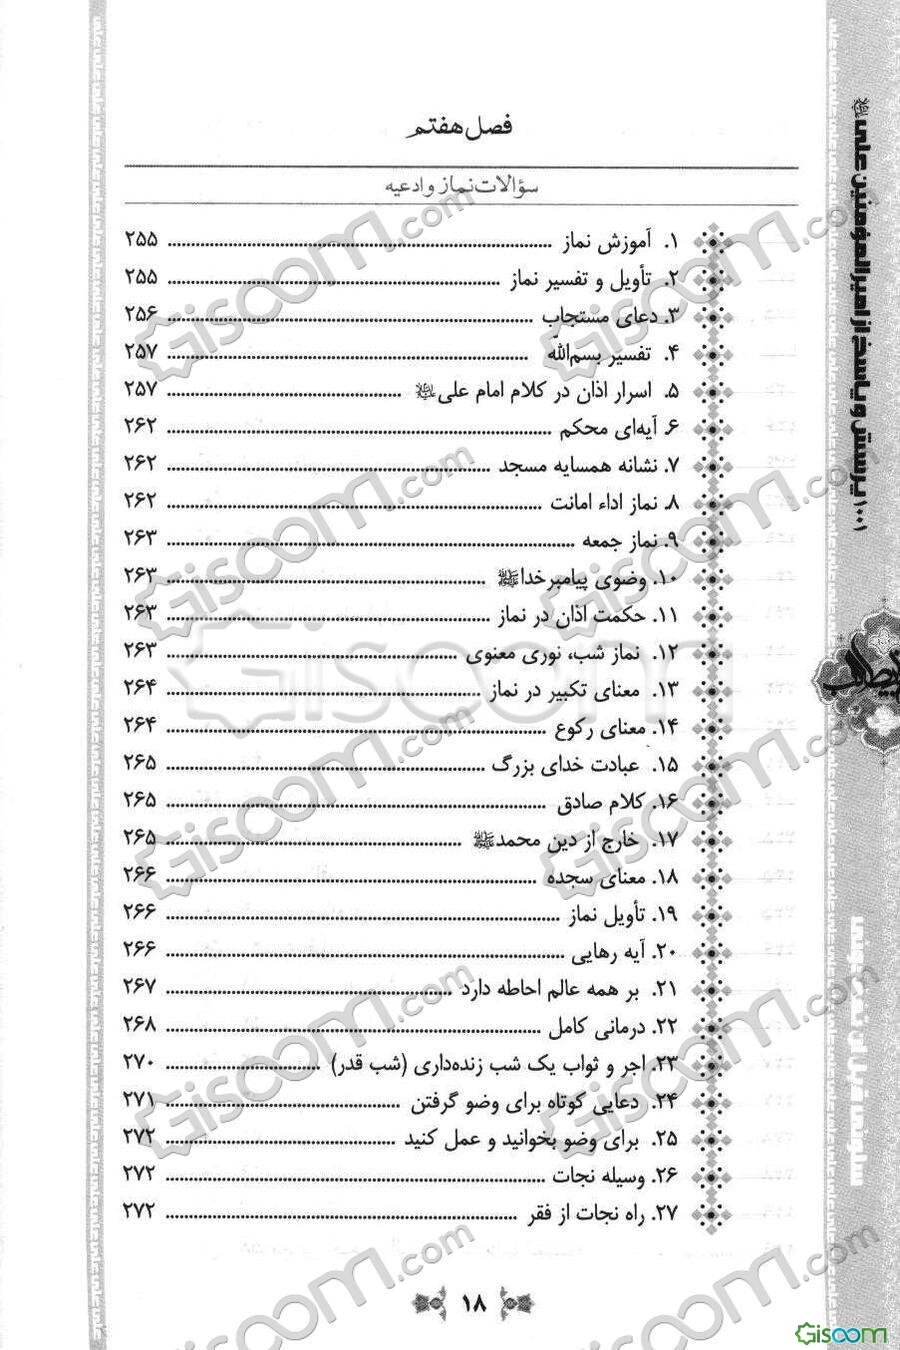 فصل هفتم
سؤالات نماز و ادعیه
۱. آموزش نماز ........ ۲۵۵
۲. تأویل و تفسیر نماز ........ ۲۵۵
۳. دعای مستجاب ........ ۲۵۶
۴. تفسیر بسم‌اللّه ........ ۲۵۷
۵. اسرار اذان در کلام امام علی ........ ۲۵۷
۶. آیه‌ای محکم ........ ۲۶۲
۷. نشانه همسایه مسجد ........ ۲۶۲
۸. نماز اداء امانت ........ ۲۶۲
۹. نماز جمعه ........ ۲۶۳
۱۰. وضوی پیامبر خداﷺ ........ ۲۶۳
۱۱. حکمت اذان در نماز ........ ۲۶۳
۱۲. نماز شب، نوری معنوی ........ ۲۶۳
۱۳. معنای تکبیر در نماز ........ ۲۶۴
۱۴. معنای رکوع ........ ۲۶۴
۱۵. عبادت خدای بزرگ ........ ۲۶۵
۱۶. کلام صادق ........ ۲۶۵
۱۷. خارج از دین محمدﷺ ........ ۲۶۵
۱۸. معنای سجده ........ ۲۶۶
۱۹. تأویل نماز ........ ۲۶۶
۲۰. آیه رهایی ........ ۲۶۶
۲۱. بر همه عالم احاطه دارد ........ ۲۶۷
۲۲. درمانی کامل ........ ۲۶۸
۲۳. اجر و ثواب یک شب زنده‌داری (شب قدر) ........ ۲۷۰
۲۴. دعایی کوتاه برای وضو گرفتن ........ ۲۷۱
۲۵. برای وضو بخوانید و عمل کنید ........ ۲۷۲
۲۶. وسیله نجات ........ ۲۷۲
۲۷. راه نجات از فقر ........ ۲۷۲
۱۸
۱۰۰۱ پرسش و پاسخ از امیرالمؤمنین علی
Giscom.com
Giscom